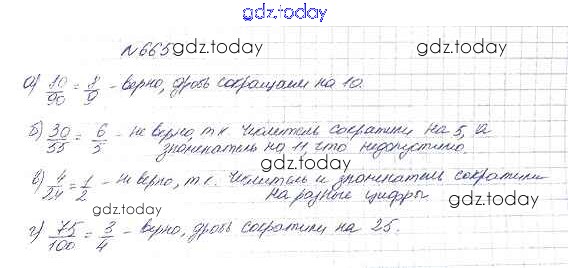 gdz.today
gdz.today
№665 gdz.today
а) 80/90 = 8/9 - верно, дробь сокращали на 10.
б) 30/55 = 6/5 - не верно, т.к. числитель сократили на 5, а
знаменатель на 11 что недопустимо.
gdz.today
в) 4/24 = 1/2 - не верно, т.к. числитель и знаменатель сократили
на разные цифры
gdz.today
gdz.today
г) 75/100 = 3/4 - верно, дробь сократили на 25.
gdz.today